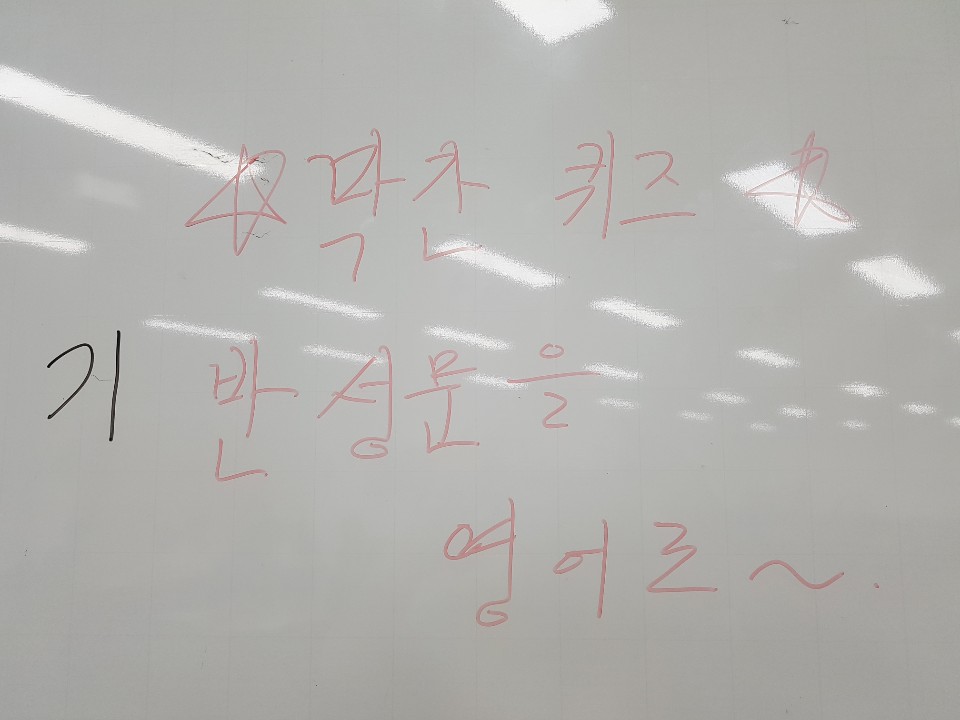 ☆막간 퀴즈☆
기 반성문을
영어로~.